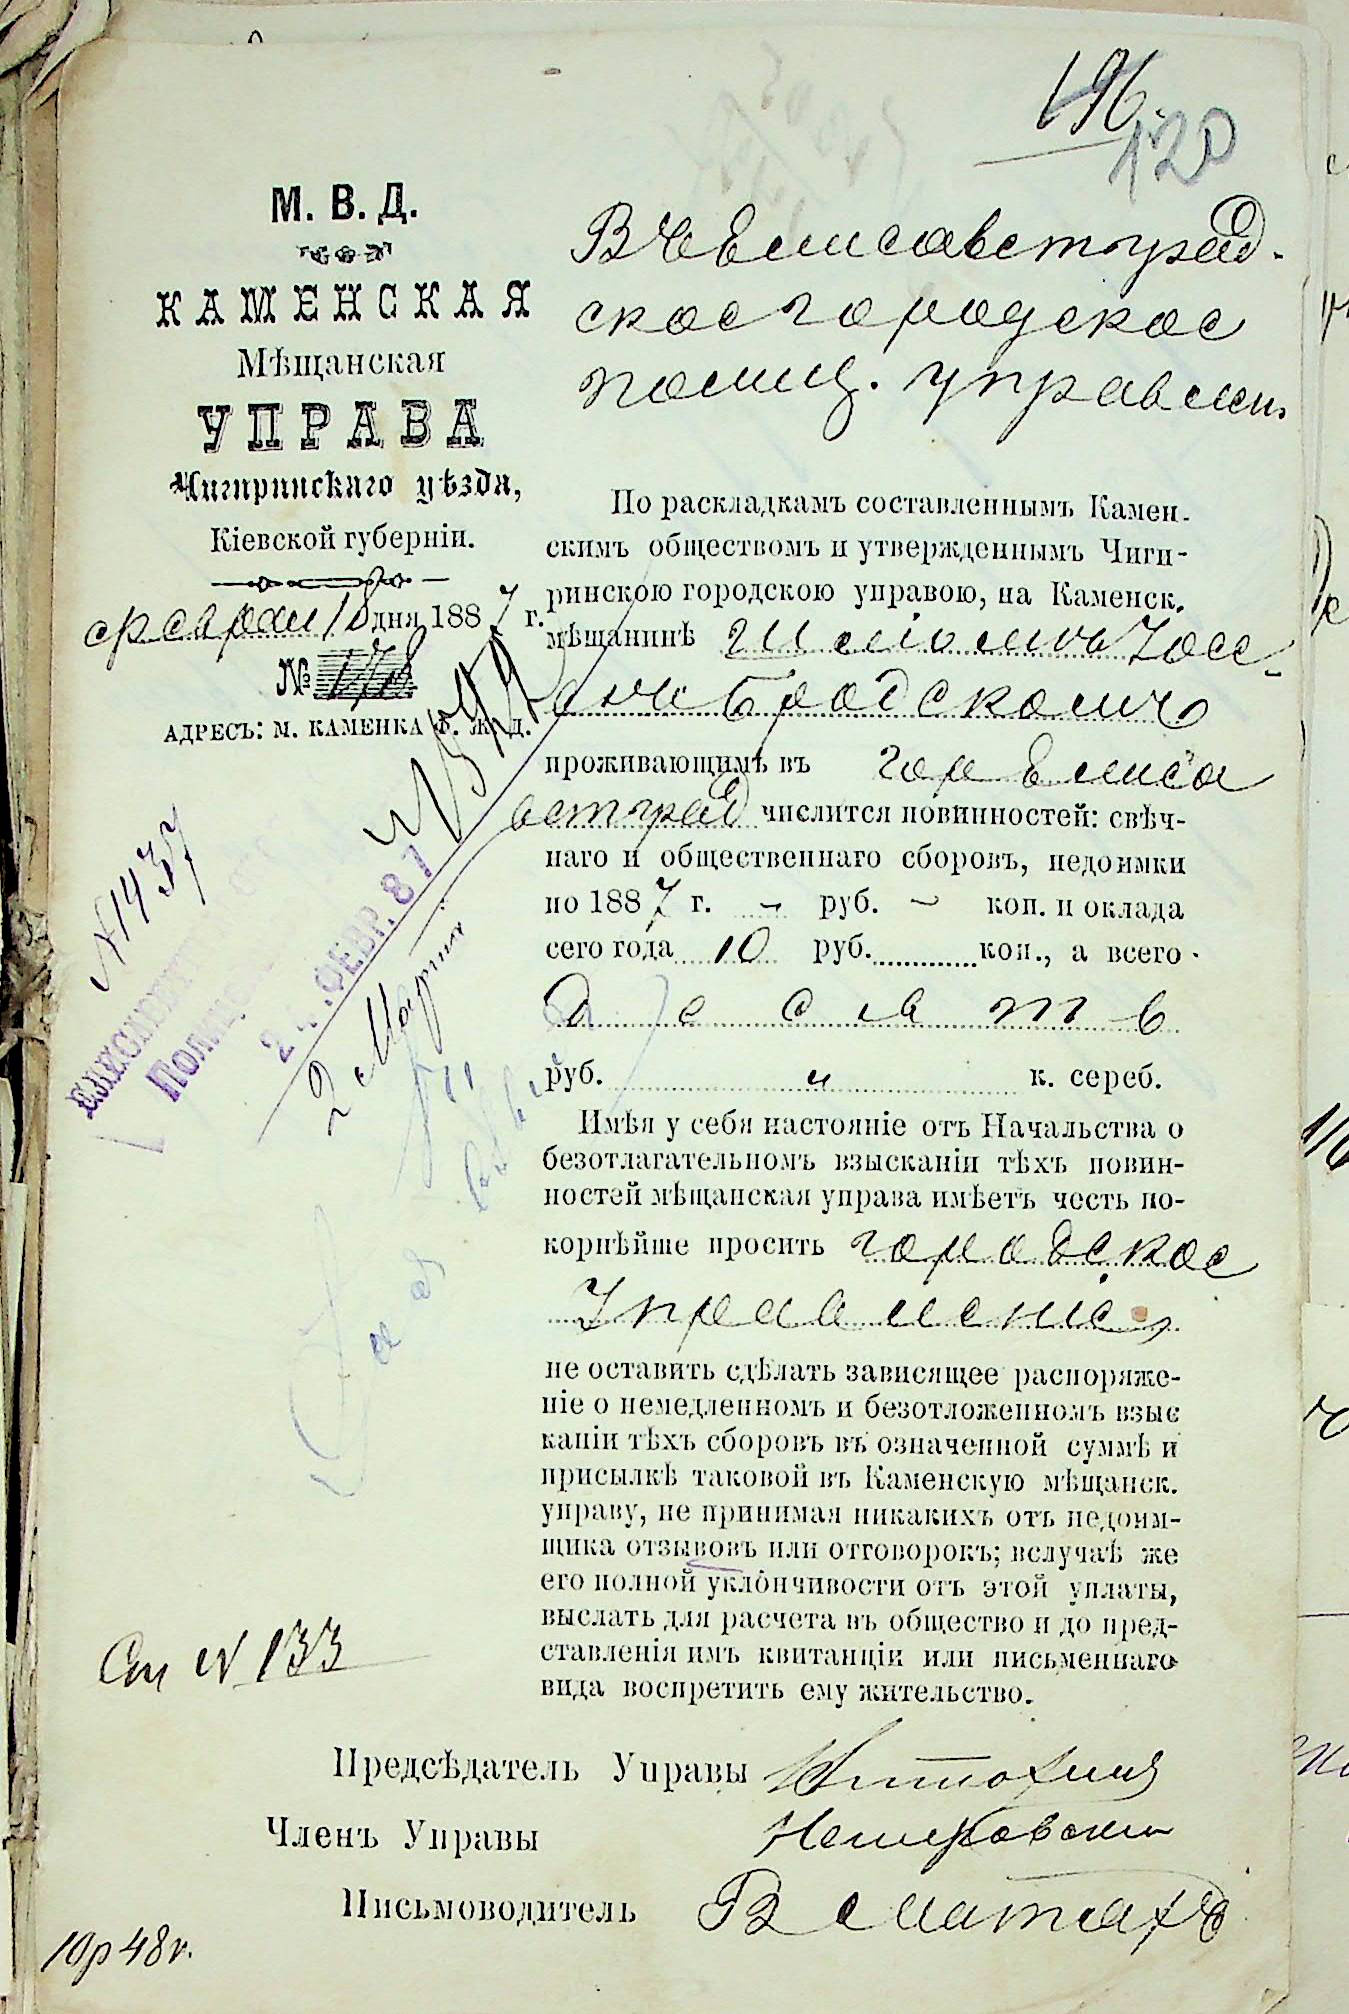 196.
120
М. В. Д.
КАМЕНСКАЯ
Мѣщанская
УПРАВА
Чигиринскаго уѣзда,
Кіевской губерніи.
февраля 18 дня 1887 г.
№ 178
АДРЕСЪ: М. КАМЕНКА Ф. Ж. Д.
Въ Елисаветград-
ское городское
полиц. управлен.
По раскладкамъ составленнымъ Камен-
скимъ обществомъ и утвержденнымъ Чиги-
ринскою городскою управою, на Каменск.
мѣщанинѣ
Бродскомъ
проживающимъ въ гор Елиса
ветград числится повинностей: свѣч-
наго и общественнаго сборовъ, недоимки
по 1887 г. - руб. - коп. и оклада
сего года 10 руб. коп., а всего
десять
руб. к. сереб.
Имѣя у себя настояніе отъ Начальства о
безотлагательномъ взысканіи тѣхъ повин-
ностей мѣщанская управа имѣетъ честь по-
корнѣйше просить городское
Управленіе
не оставить сдѣлать зависящее распоряже-
ніе о немедленномъ и безотложенномъ взыс
каніи тѣхъ сборовъ въ означенной суммѣ и
присылкѣ таковой въ Каменскую мѣщанск.
управу, не принимая никакихъ отъ недоим-
щика отзывовъ или отговорокъ; вслучаѣ же
его полной уклончивости отъ этой уплаты,
выслать для расчета въ общество и до пред-
ставленія имъ квитанціи или письменнаго
вида воспретить ему жительство.
N 1437
24. ФЕВР. 87
2 Марта
Ст N 133
Предсѣдатель Управы
Членъ Управы
Письмоводитель
19р 48г.